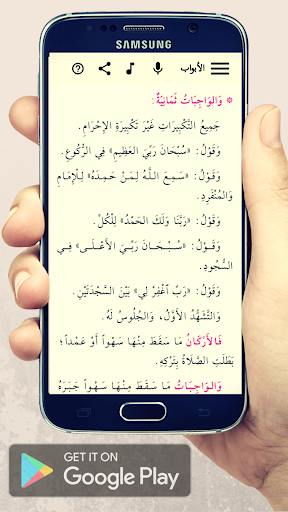 SAMSUNG
الأبواب
* وَالوَاجِبَاتُ ثَمَانِيَةٌ:
جَمِيعُ التَّكْبِيرَاتِ غَيْرَ تَكْبِيرَةِ الإِحْرَامِ.
وَقَوْلُ: «سُبْحَانَ رَبِّيَ العَظِيمِ» فِي الرُّكُوعِ.
وَقَوْلُ: «سَمِعَ اللَّهُ لِمَنْ حَمِدَهُ» لِلْإِمَامِ
وَالمُنْفَرِدِ.
وَقَوْلُ: «رَبَّنَا وَلَكَ الحَمْدُ» لِلْكُلِّ.
وَقَوْلُ: «سُبْحَانَ رَبِّيَ الأَعْلَى» فِي
السُّجُودِ.
وَقَوْلُ: «رَبِّ اغْفِرْ لِي» بَيْنَ السَّجْدَتَيْنِ.
وَالتَّشَهُّدُ الأَوَّلُ، وَالجُلُوسُ لَهُ.
فَالأَرْكَانُ مَا سَقَطَ مِنْهَا سَهْواً أَوْ عَمْداً؛
بَطَلَتِ الصَّلَاةُ بِتَرْكِهِ.
وَالوَاجِبَاتُ مَا سَقَطَ مِنْهَا سَهْواً جَبَرَهُ
GET IT ON
Google Play